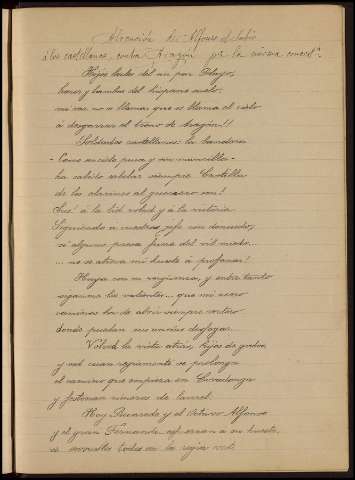 Alocución de Alfonso el Sabio
á los castellanos contra Aragón por la misma
Hijos leales del sin par Pelayo,
honor y lumbre del hispano suelo
mi voz no es llamar que os llama el cielo
á desgarrar el trono de Aragón!!
Soldados castellanos: la bandera
- Como su cielo pura y sin mancilla -
ha sabido ostentar siempre Castilla
de los clarines al guerrero son!
Sus! á la lid volad y á la victoria
Siguiendo a vuestro jefe con denuedo,
si alguno presa fuera del vil miedo...
... no se atreva mi hueste á profanar!
Huya con su vergüenza, y entre tanto
síganme los valientes... que mi acero
caminos ha de abrir siempre certero
donde puedan sus sañas desfogar.
Volved la vista atrás, hijos de godos
y ved cuan regiamente se prolonga
el camino que empieza en Covadonga
y festonan ramos de laurel.
Hoy Recaredo y el Octavo Alfonso
y el gran Fernando
es todos en la regia